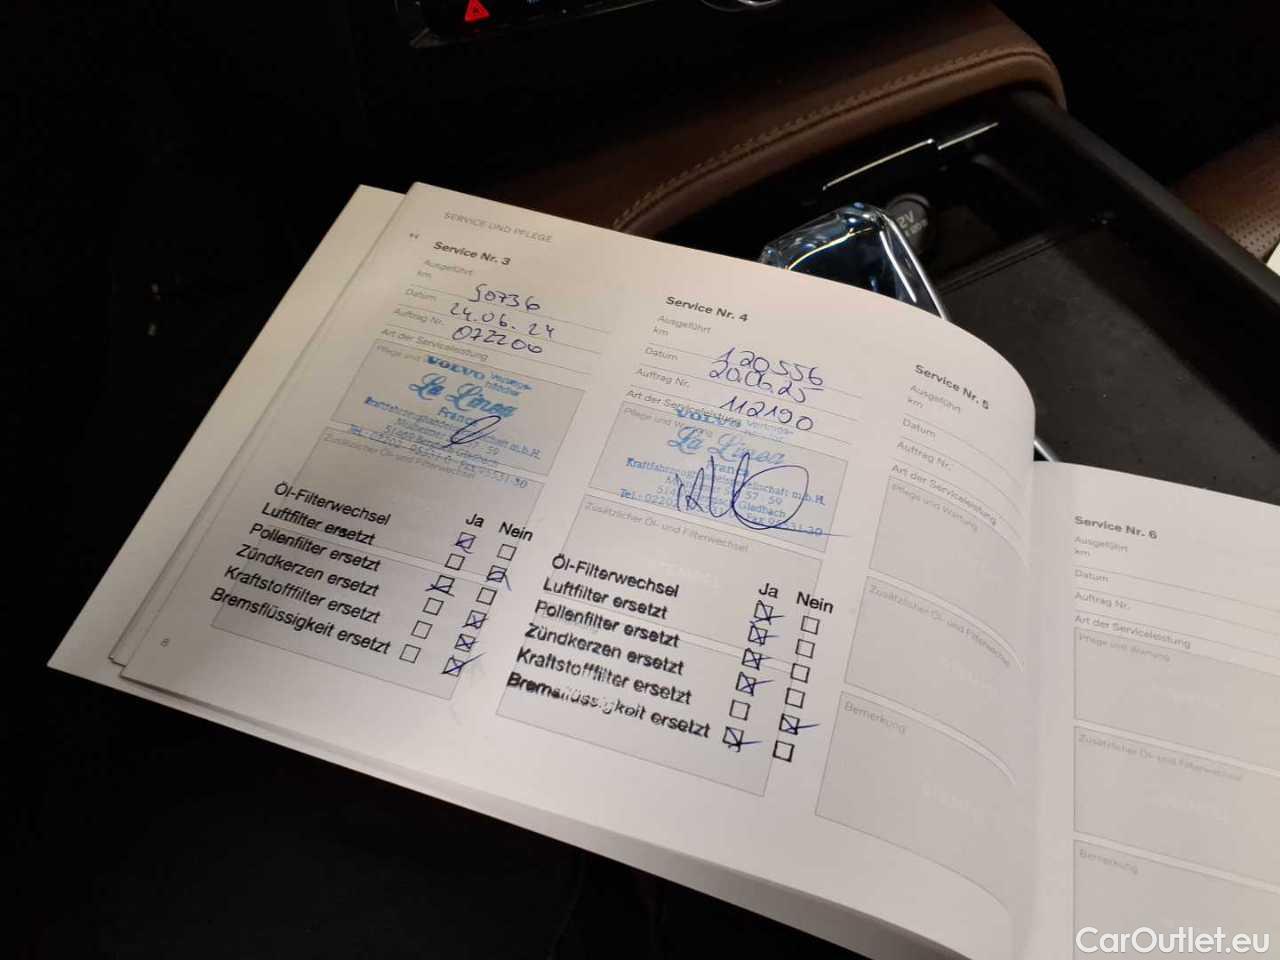 SERVICE UND PFLEGE
Service Nr. 3
Ausgeführt
km
90736
Datum
24.06.24
Auftrag Nr.
072200
Art der Serviceleistung
Pflege und
VOLVO Vertrags-
händler
La Linea
Franca
Kraftfahrzeughandelsgesellschaft m.b.H.
59
Tel.
Fax 95531-30
Zusätzlicher Öl- und Filterwechsel
Öl-Filterwechsel
Luftfilter ersetzt
Pollenfilter ersetzt
Zündkerzen ersetzt
Kraftstofffilter ersetzt
Bremsflüssigkeit ersetzt
Ja Nein
8
Service Nr. 4
Ausgeführt
km
120556
Datum
20.06.25
Auftrag Nr.
112190
Art der Serviceleistung
Pflege und Wartung
VOLVO Vertrags-
La Linea
Franca
Kraftfahrzeughandelsgesellschaft m.b.H.
57 59
Gladbach
Fax 95531-30
Zusätzlicher Öl- und Filterwechsel
Öl-Filterwechsel
Luftfilter ersetzt
Pollenfilter ersetzt
Zündkerzen ersetzt
Kraftstofffilter ersetzt
Bremsflüssigkeit ersetzt
Ja Nein
Service Nr. 5
Ausgeführt
km
Datum
Auftrag Nr.
Art der Serviceleistung
Pflege und Wartung
Zusätzlicher Öl- und Filterwechsel
Bemerkung
Service Nr. 6
Ausgeführt
km
Datum
Auftrag Nr.
Art der Serviceleistung
Pflege und Wartung
Zusätzlicher Öl- und Filterwechsel
Bemerkung
CarOutlet.eu